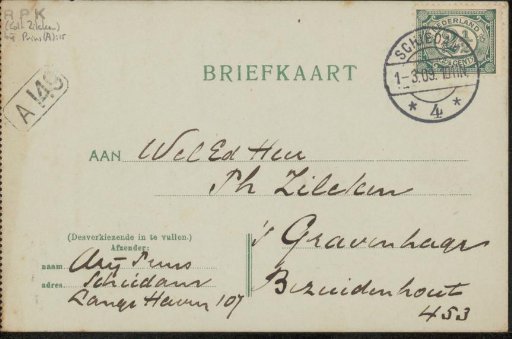 R.P.K
(Coll. Zilcken)
NEDERLAND
CENT
SCHIEDAM
1-3.09.
* 4 *
A 149
BRIEFKAART
AAN Wel Ed Heer
Ph Zilcken
's Gravenhage
Bezuidenhout
453
(Desverkiezende in te vullen.)
Afzender:
naam Arij Prins
adres. Schiedam
Lange Haven 107